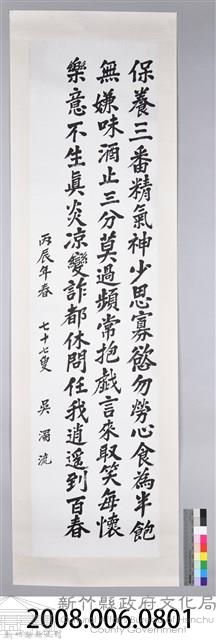 保養三番精氣神少思寡慾勿勞心食為半飽
無嫌味酒止三分莫過頻常抱戲言來取笑每懷
樂意不生真炎凉變詐都休問任我逍遙到百春
丙辰年春 七十七叟 吳濁流
新竹縣政府文化局
County Government
2008.006.0801